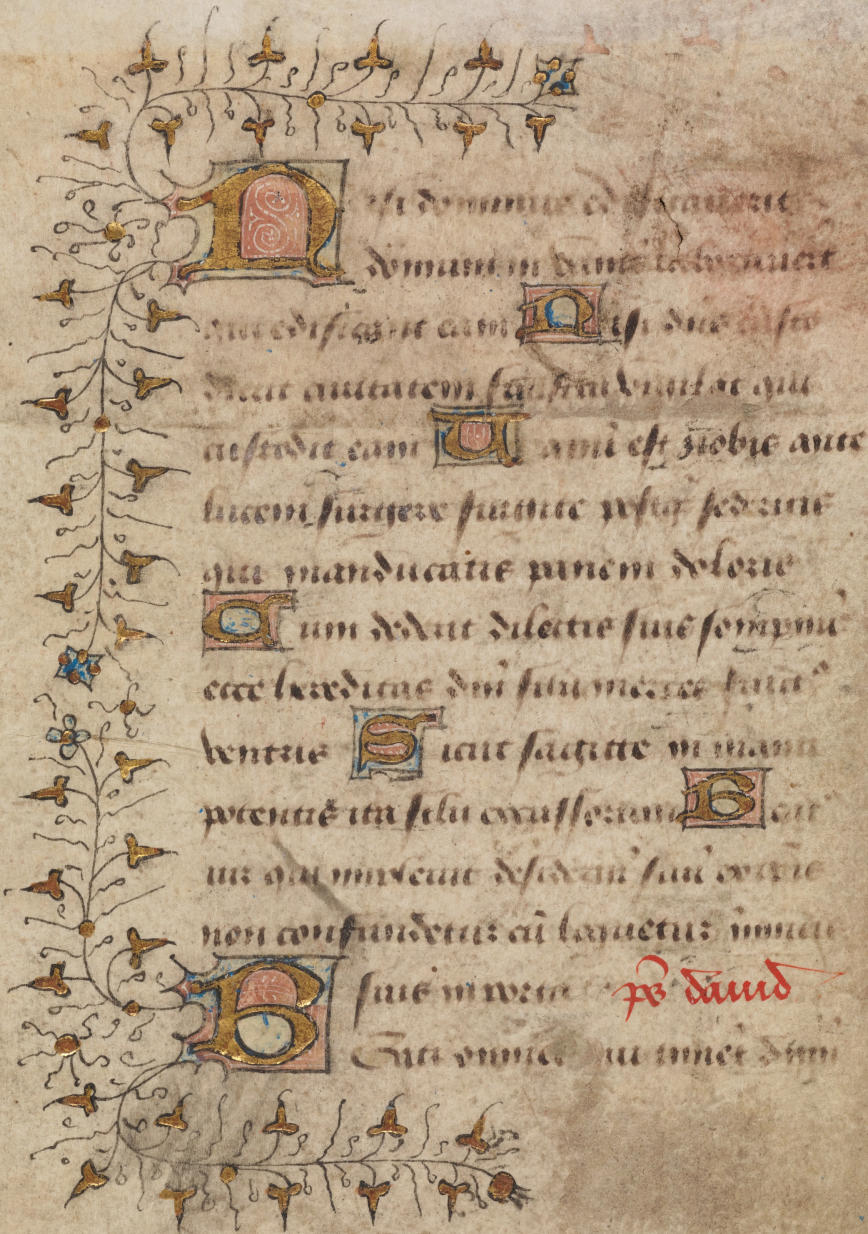 Nisi dominus edificauerit
domum in vanu laborauerit
qui edificant eam Nisi dns custo
dierit ciuitatem frustra vigilat qui
custodit eam Uanu est vobis ante
lucem surgere surgite postq sederitis
qui manducatis panem doloris
Cum dederit dilectis suis sompnu
ecce hereditas dni filii merces fructus
ventris Sicut sagitte in manu
potentis ita filii excussorum Beat
us qui impleuit desideriu suu ex ipsis
non confundetur cu loquetur inimicis
suis in porta ps dauid
Beati omnes qui timet dnm